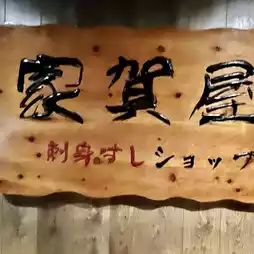 家賀屋
刺身・すしショップ